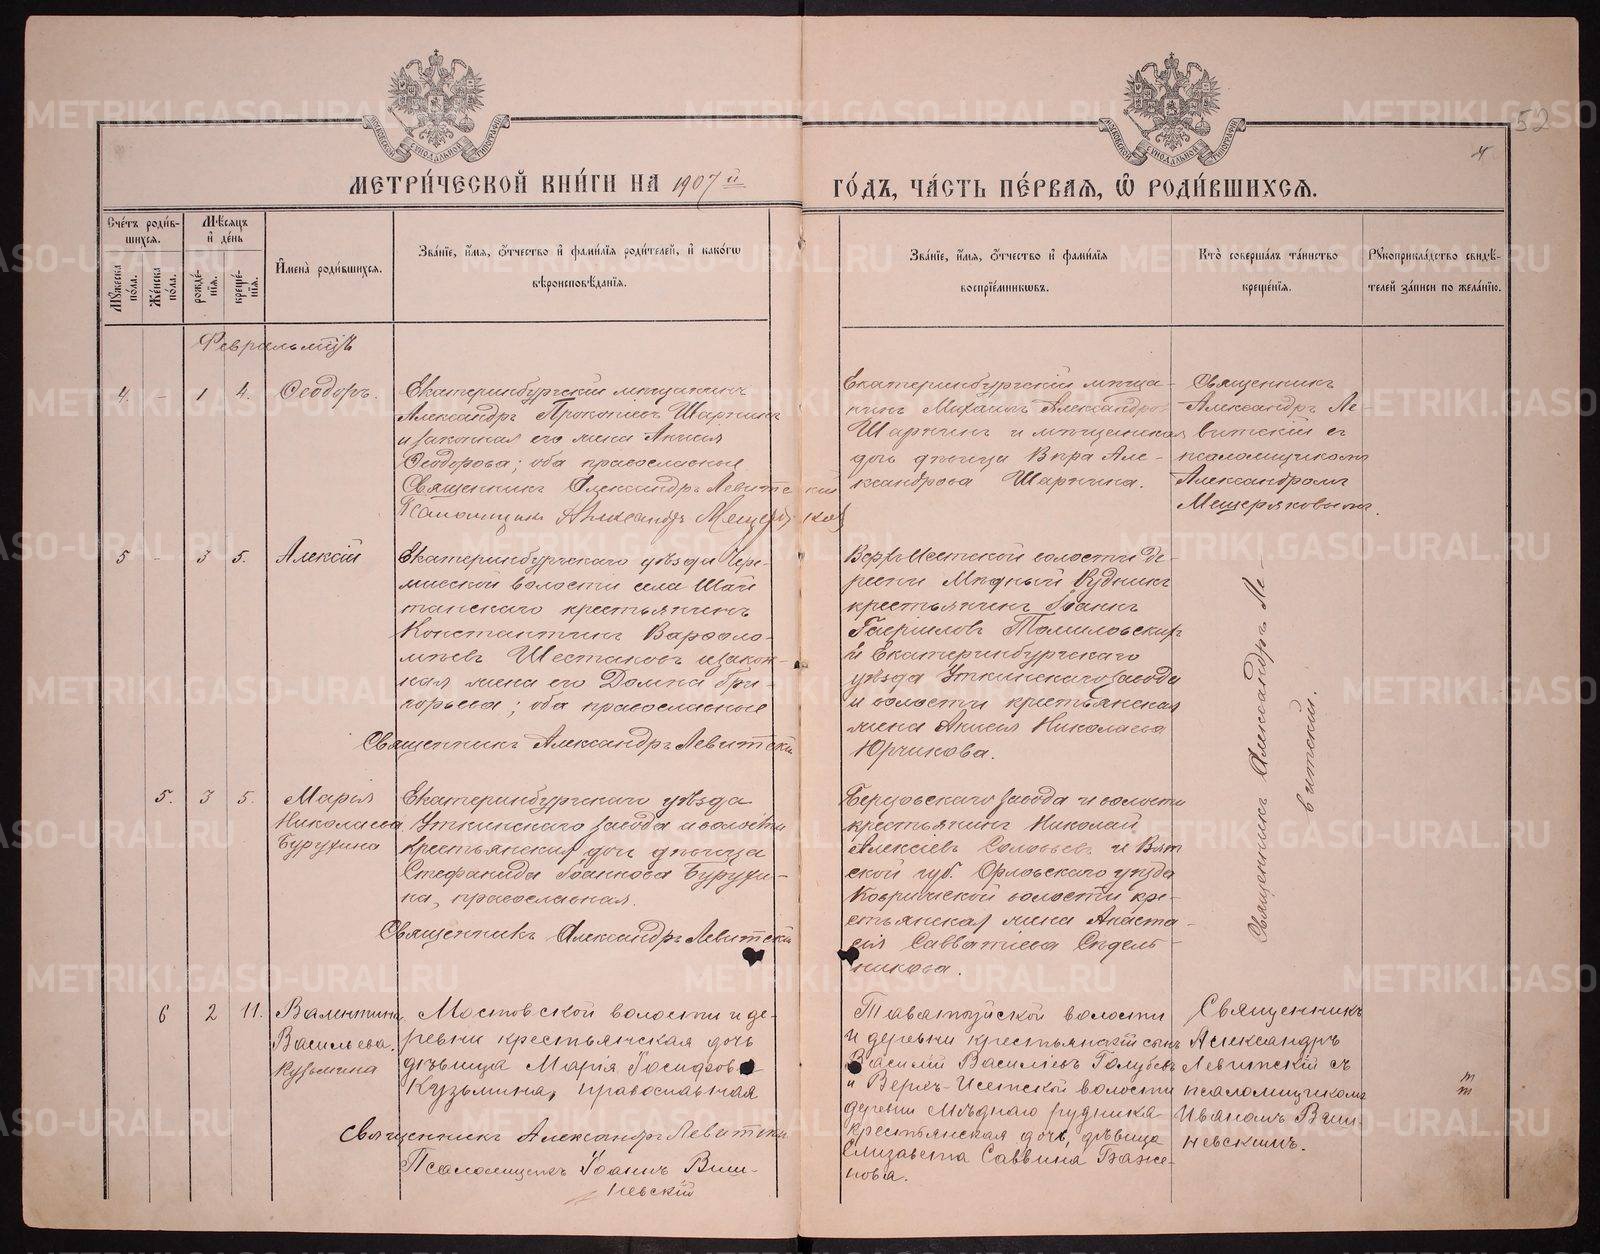 МЕТРИ́ЧЕСКОЙ КНИ́ГИ НА 1907 й
ГО́ДЪ, ЧА́СТЬ ПЕ́РВАЯ, Ѽ РОДИ́ВШИХСЯ.
52
4
Сче́тъ роди́в-
шихся.
Мꙋжеска по́ла.
Же́нска по́ла.
Мѣ́сяцъ
и҆ де́нь
рожде́-
нїѧ.
креще́-
нїѧ.
И҆мена̀ роди́вшихся.
Зва́нїе, и҆́мѧ, ѻ҆́тчество и҆ фами́лїѧ роди́телей, и҆ како́гѡ
вѣроисповѣ́данїѧ.
Зва́нїе, и҆́мѧ, ѻ҆́тчество и҆ фами́лїѧ
воспрїе́мникѡвъ.
Кто̀ соверша́лъ та́инство
креще́нїѧ.
Рꙋкоприкла́дство свидѣ́-
телей за́писи по жела́нїю.
Февраль мцъ
4. - 1 4. Ѳеодоръ.
Екатеринбургский мѣщанинъ
Александръ Прокопиевъ Шаричинъ
и законная его жена Анисія
Ѳеодорова; оба православные
Священникъ Александръ Левитский
Псаломщикъ Александръ Мещеряковъ
Екатеринбургскій мѣща-
нинъ Михаилъ Александровъ
и мѣщанская
дочь дѣвица Вѣра Але-
ксандрова
Священникъ
Александръ Ле-
витскій съ
псаломщикомъ
Александромъ
Мещеряковымъ.
5 - 3 5. Алексій
Екатеринбургскаго уѣзда Чере-
мисской волости села Шай
танскаго крестьянинъ
Константинъ Варѳоло-
мѣевъ Шестаковъ и закон-
ная жена его Домна Гри-
горьева; оба православные
Священникъ Александръ Левитскій
Верхъ-Исетской волости де-
ревни Мѣдный Рудникъ
крестьянинъ Іоаннъ
Гавріиловъ Томиловскихъ
и Екатеринбургскаго
уѣзда Уткинскаго завода
и волости крестьянская
жена Анисія Николаева
Юрчикова.
Священникъ Александръ Ле-
витскій.
5. 3 5. Марія
Николаева
Бурухина
Екатеринбургскаго уѣзда
Уткинскаго завода и волости
крестьянская дочь дѣвица
Стефанида Іоаннова Бурухи-
на, православная.
Священникъ Александръ Левитскій
Березовскаго завода и волости
крестьянинъ Николай
Алексіевъ Соловьевъ и Вят
ской губ. Орловскаго уѣзда
волости кре-
стьянская жена Анаста-
сія Савватіева Сидель-
никова.
6 2 11. Валентина
Васильева.
Кузьмина
Мостовской волости и де-
ревни крестьянская дочь
дѣвица Марія Іосифова
Кузьмина, православная
Священникъ Александръ Левитскій
Псаломщикъ Іоаннъ Виш-
невскій
Таватуйской волости
и деревни крестьянскій сынъ
Василій Васильевъ Голубевъ
и Верхъ-Исетской волости
деревни Мѣднаго рудника
крестьянская дочь, дѣвица
Елизавета Саввина Баже-
нова.
Священникъ
Александръ
Левитскій съ
псаломщикомъ
Иваномъ Виш-
невскимъ.